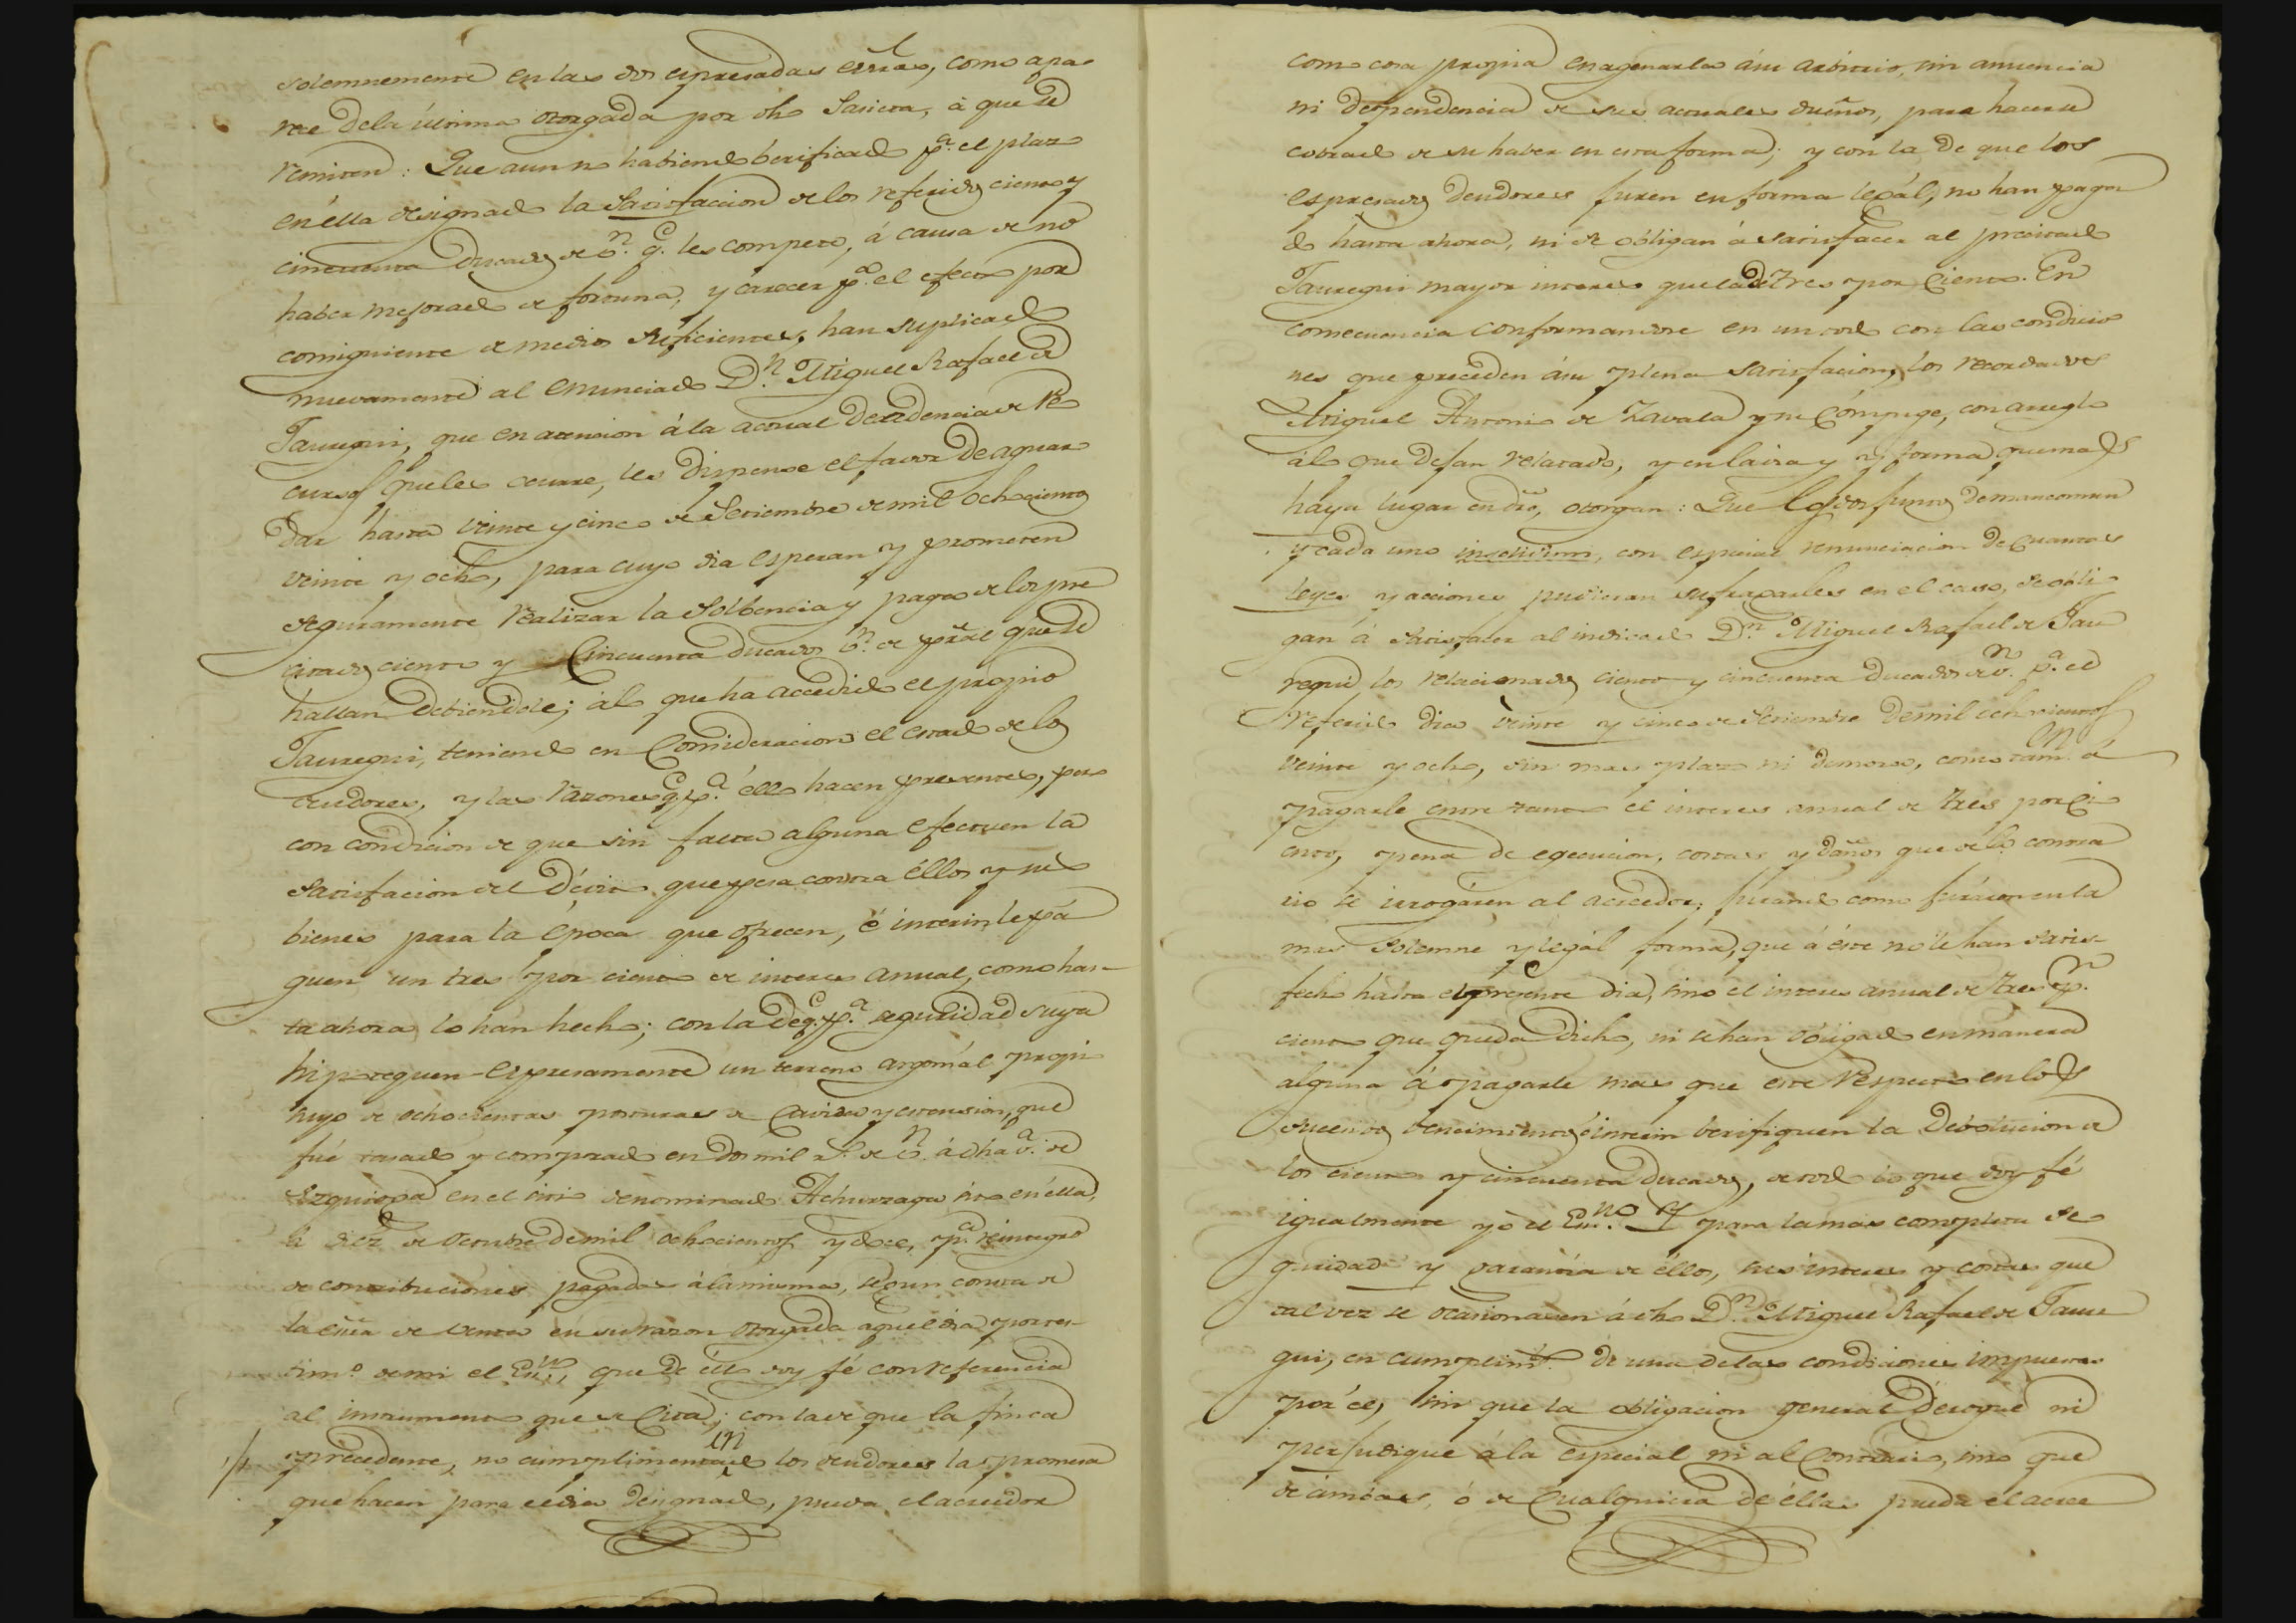 solemnemente en las dos expresadas escrãs, como apa-
rece dela última otorgada por dho Sasieta, á que se
remiten: Que aun no habiendo berificado pª. el plazo
en élla designado la Satisfaccion de los referidos ciento y
cincuenta Ducados de vⁿ. q.e les compete, á causa de no
haber mejorado de fortuna, y carecer pª. el efecto por
consiguiente de medios suficientes, han suplicado
nuevamente al enunciado Dⁿ. Miguel Rafael de
Jauregui, que en atencion á la actual decadencia de re
cursos que les ocurre, les dispense el favor de aguar
dar hasta veinte y cinco de Setiembre de mil ochocientos
veinte y ocho, para cuyo dia esperan y prometen
seguramente realizar la Solbencia y pago de los pre
citados ciento y Cincuenta ducados vⁿ. de pral que se
hallan debiendole; álo que ha accedido el propio
Jauregui, teniendo en Consideracion el estado de los
deudores, y las razones q.e pª. éllo hacen presentes, pero
con condicion de que sin falta alguna efectuen la
satisfacion del Dévito que pesa contra éllos y sus
bienes para la época que ofrecen, é interin le pa
guen un tres por ciento de interes anual, como has-
ta ahora lo han hecho; con la de q.e pª. seguridad suya
hipotequen espresamente un terreno argomál propio
suyo de ochocientas posturas de Cavida y estension, que
fué tasado y comprado en dos mil rˢ. de vⁿ. á dha vª. de
Ezquioga en el sitio denominado Achurzaga sito en élla,
á diez de Octubre de mil ochocientos y doce, pª. reintegro
de contribuciones pagadas á la misma, segun consta de
la escrã de venta en su razon otorgada aquel dia por tes-
timº. de mi el Esno., que de éllo doy fé con referencia
al instrumento que se Cita; con la de que la finca
precedente, no cumplimentando en los deudores la promesa
que hacen para el dia designado, pueda el acreedor
como cosa propia enagenarla ásu arbitrio, sin anuencia
ni dependencia de sus actuales dueños, para hacerse
cobrado de su haber en esta forma; y con la de que los
espresados deudores juren en forma legál, no han paga
do hasta ahora, ni se obligan á satisfacer al precitado
Jauregui mayor interes que el de tres por Ciento. En
consecuencia conformandose en un todo con las condicio
nes que preceden ásu plena satisfacion, los recordados
Miguel Antonio de Zavala y su Cónyuge, con arreglo
álo que dejan relatado, y en la via y forma que mas
haya lugar en dro, otorgan: Que los dos juntos demancomun
y cada uno insolidum, con especial renunciacion de cuantas
leyes y acciones pudieran sufragarles en el caso, se obli
gan á satisfacer al indicado Dⁿ. Miguel Rafael de Jau
regui los relacionados ciento y cincuenta Ducados de vⁿ. pª. el
referido dia veinte y cinco de Setiembre de mil ochocientos
veinte y ocho, sin mas plazo ni demora, como tamⁿ. á
pagarle entre tanto el interes anual de tres por Ci
ento, pena de egecucion, costas y daños que de lo contra
rio se irrogáren al acreedor; jurando como juráron en la
mas Solemne y legál forma, que á éste no le han satis-
fecho hasta el presente dia, sino el interes anual de tres pʳ.
ciento que queda dicho, ni se han obligado en manera
alguna á pagarle mas que este respecto en los
sucesivos vencimientos, é interin berifiquen la Debolucion de
los ciento y cincuenta Ducados, de todo lo que doy fé
igualmente yó el Esno. Y para la mas completa se
guridad y garantía de éllos, sus intereses y costas que
tal vez se ocasionasen á dho Dⁿ. Miguel Rafael de Jaure
gui, en cumplimto. de una de las condiciones impuestas
por él, sin que la obligacion general derogue ni
perjudique á la especial ni al Contrario, sino que
de ámbas, ó de Cualquiera de éllas pueda el acree